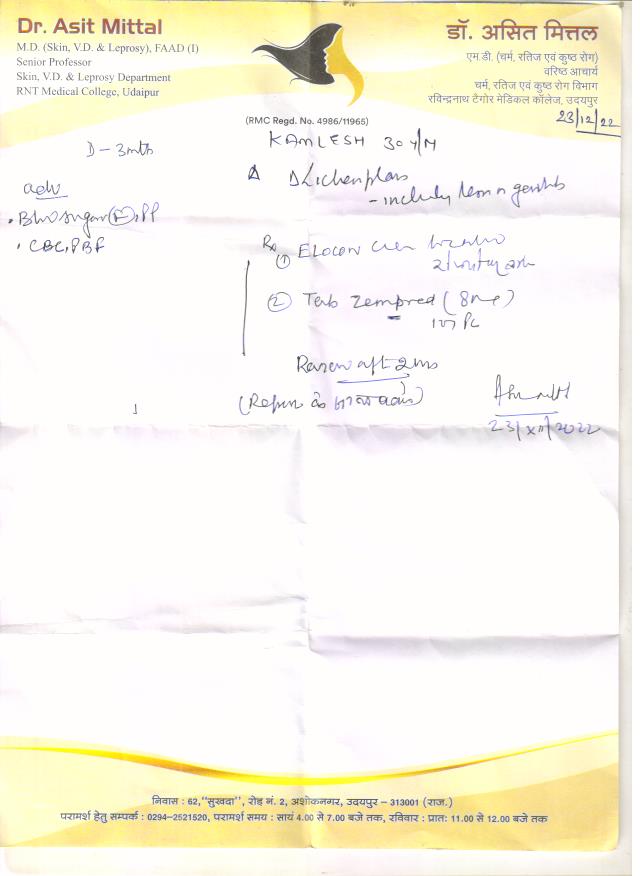 Dr. Asit Mittal
M.D. (Skin, V.D. & Leprosy), FAAD (I)
Senior Professor
Skin, V.D. & Leprosy Department
RNT Medical College, Udaipur
डॉ. असित मित्तल
एम.डी. (चर्म, रतिज एवं कुष्ठ रोग)
वरिष्ठ आचार्य
चर्म, रतिज एवं कुष्ठ रोग विभाग
रविन्द्रनाथ टैगोर मेडिकल कॉलेज, उदयपुर
(RMC Regd. No. 4986/11965)
23/12/22
KAMLESH 30y/M
D - 3mth
Δ
adv
• Bld sugar (F), PP
• CBC, PBF
Rx
① Elocon
② Tab Zempred (8mg)
Review aft 2
(Report के
23/XII/2022
निवास : 62,"सुखदा", रोड़ नं. 2, अशोकनगर, उदयपुर – 313001 (राज.)
परामर्श हेतु सम्पर्क : 0294–2521520, परामर्श समय : सायं 4.00 से 7.00 बजे तक, रविवार : प्रातः 11.00 से 12.00 बजे तक